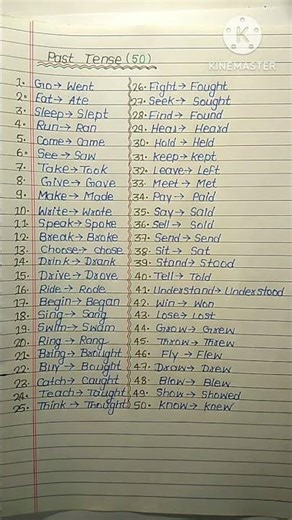 KINEMASTER
Past Tense (50)
1. Go → Went
2. Eat → Ate
3. Sleep → Slept
4. Run → Ran
5. Come → Came
6. See → Saw
7. Take → Took
8. Give → Gave
9. Make → Made
10. Write → Wrote
11. Speak → Spoke
12. Break → Broke
13. Choose → chose
14. Drink → Drank
15. Drive → Drove
16. Ride → Rode
17. Begin → Began
18. Sing → Sang
19. Swim → Swam
20. Ring → Rang
21. Bring → Brought
22. Buy → Bought
23. Catch → Caught
24. Teach → Taught
25. Think → Thought
26. Fight → Fought
27. Seek → Sought
28. Find → Found
29. Hear → Heard
30. Hold → Held
31. keep → kept
32. Leave → Left
33. Meet → Met
34. Pay → Paid
35. Say → Said
36. Sell → Sold
37. Send → Send
38. Sit → Sat
39. Stand → Stood
40. Tell → Told
41. Understand → Understood
42. Win → Won
43. Lose → Lost
44. Grow → Grew
45. Throw → Threw
46. Fly → Flew
47. Draw → Drew
48. Blow → Blew
49. Show → Showed
50. Know → knew